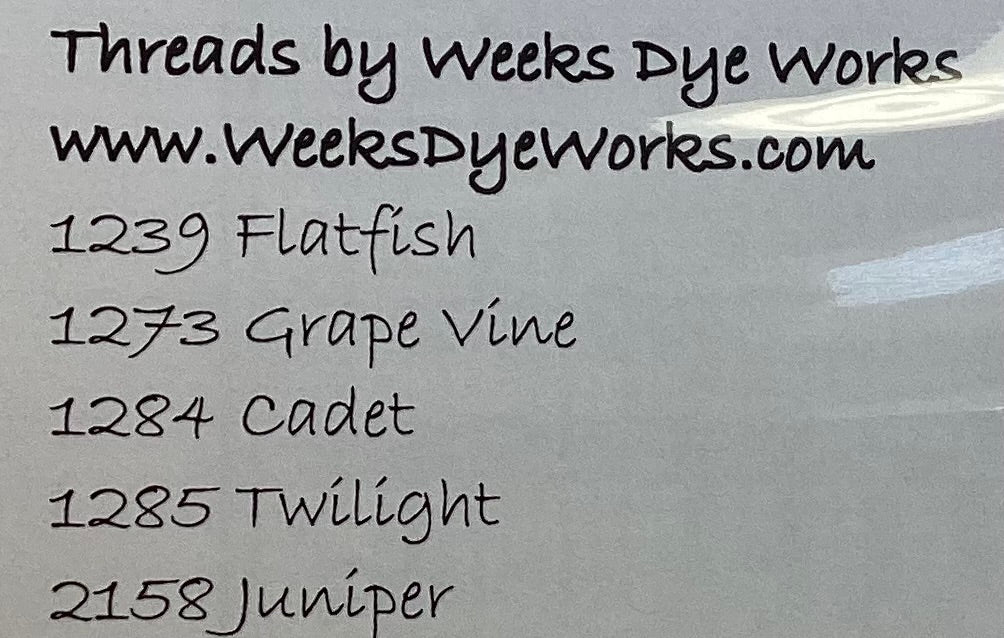 Threads by Weeks Dye Works
www.WeeksDyeWorks.com
1239 Flatfish
1273 Grape Vine
1284 Cadet
1285 Twilight
2158 Juniper